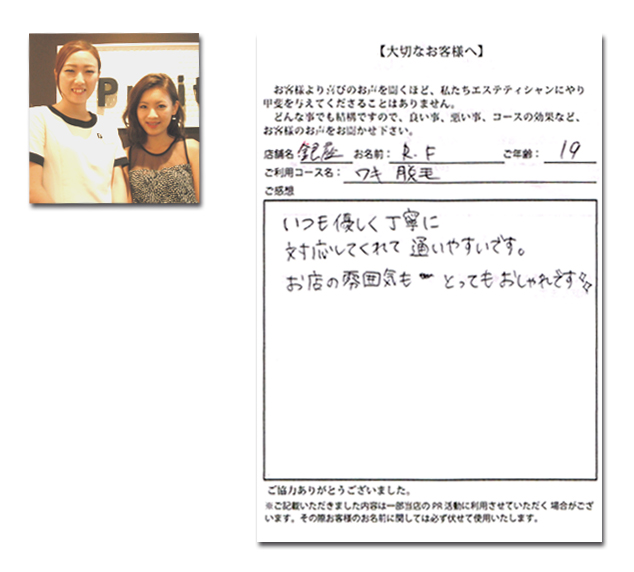 【大切なお客様へ】
お客様より喜びのお声を聞くほど、私たちエステティシャンにやり
甲斐を与えてくださることはありません。
どんな事でも結構ですので、良い事、悪い事、コースの効果など、
お客様のお声をお聞かせ下さい。
店舗名：銀座 お名前：R.F ご年齢：19
ご利用コース名：ワキ 脱毛
ご感想
いつも優しく丁寧に
対応してくれて 通いやすいです。
お店の雰囲気も とってもおしゃれです
ご協力ありがとうございました。
※ご記載いただきました内容は一部当店の PR 活動に利用させていただく場合がござ
います。その際お客様のお名前に関しては必ず伏せて使用いたします。